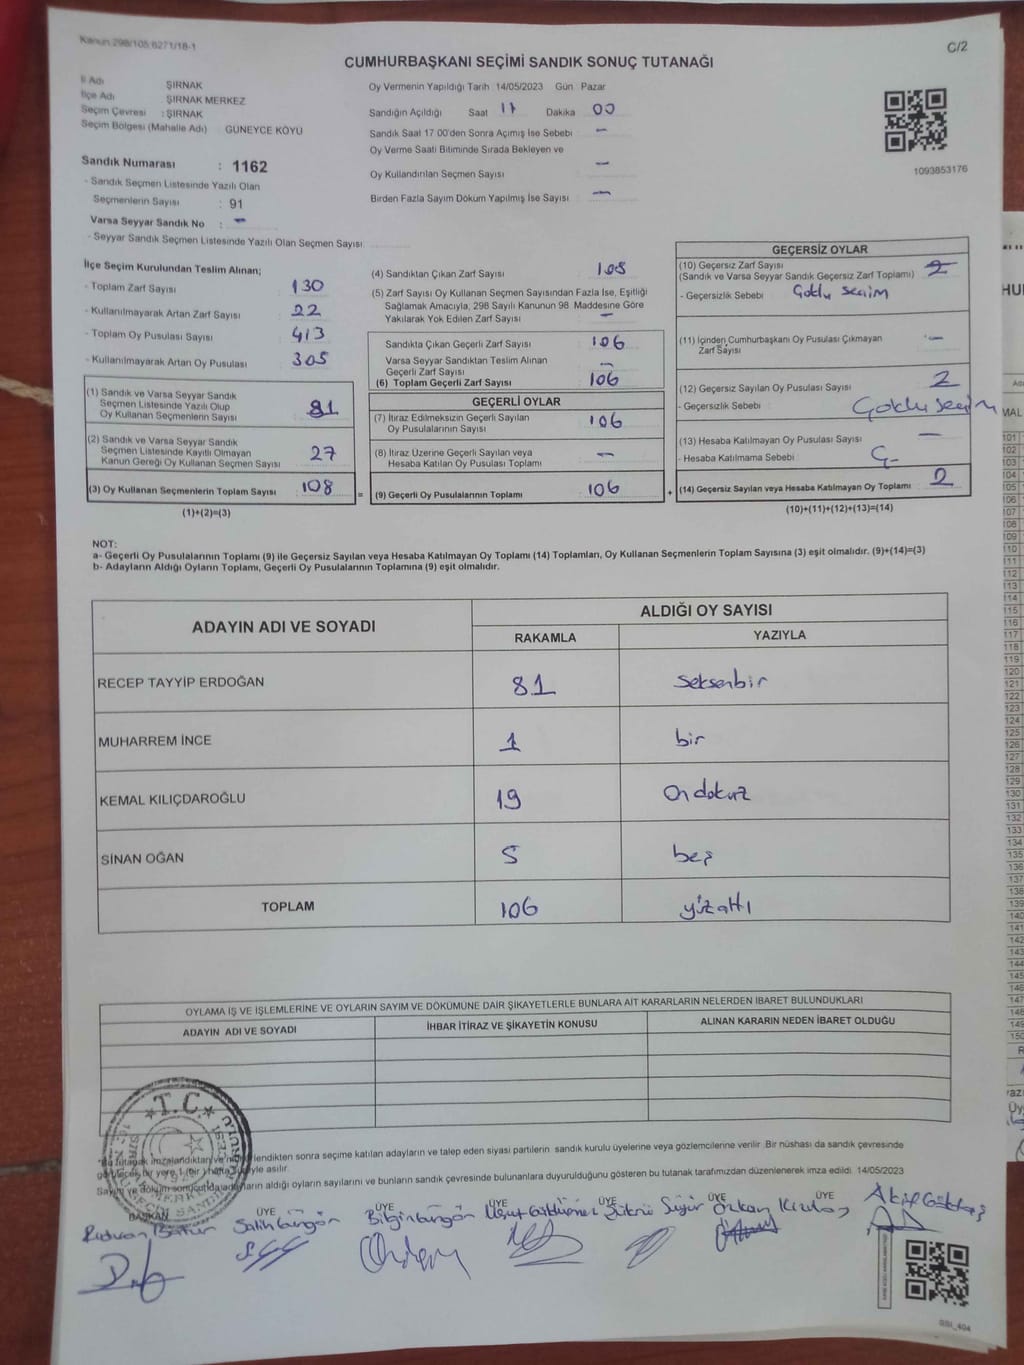 Kanun:298/105;6271/18-1
C/2
CUMHURBAŞKANI SEÇİMİ SANDIK SONUÇ TUTANAĞI
İl Adı ŞIRNAK
İlçe Adı ŞIRNAK MERKEZ
Seçim Çevresi : ŞIRNAK
Seçim Bölgesi (Mahalle Adı) GÜNEYCE KÖYÜ
Oy Vermenin Yapıldığı Tarih 14/05/2023 Gün Pazar
Sandığın Açıldığı Saat 17 Dakika 00
Sandık Saat 17 00'den Sonra Açımış İse Sebebi -
Oy Verme Saati Bitiminde Sırada Bekleyen ve
Oy Kullandırılan Seçmen Sayısı -
Birden Fazla Sayım Döküm Yapılmış İse Sayısı -
1093853176
Sandık Numarası : 1162
- Sandık Seçmen Listesinde Yazılı Olan
Seçmenlerin Sayısı : 91
Varsa Seyyar Sandık No : -
- Seyyar Sandık Seçmen Listesinde Yazılı Olan Seçmen Sayısı
İlçe Seçim Kurulundan Teslim Alınan;
- Toplam Zarf Sayısı 130
- Kullanılmayarak Artan Zarf Sayısı 22
- Toplam Oy Pusulası Sayısı 413
- Kullanılmayarak Artan Oy Pusulası 305
(1) Sandık ve Varsa Seyyar Sandık
Seçmen Listesinde Yazılı Olup
Oy Kullanan Seçmenlerin Sayısı 81
(2) Sandık ve Varsa Seyyar Sandık
Seçmen Listesinde Kayıtlı Olmayan
Kanun Gereği Oy Kullanan Seçmen Sayısı 27
(3) Oy Kullanan Seçmenlerin Toplam Sayısı 108
(1)+(2)=(3)
(4) Sandıktan Çıkan Zarf Sayısı 108
(5) Zarf Sayısı Oy Kullanan Seçmen Sayısından Fazla İse, Eşitliği
Sağlamak Amacıyla, 298 Sayılı Kanunun 98. Maddesine Göre
Yakılarak Yok Edilen Zarf Sayısı -
Sandıkta Çıkan Geçerli Zarf Sayısı 106
Varsa Seyyar Sandıktan Teslim Alınan
Geçerli Zarf Sayısı -
(6) Toplam Geçerli Zarf Sayısı 106
GEÇERLİ OYLAR
(7) İtiraz Edilmeksizin Geçerli Sayılan
Oy Pusulalarının Sayısı 106
(8) İtiraz Üzerine Geçerli Sayılan veya
Hesaba Katılan Oy Pusulası Toplamı -
= (9) Geçerli Oy Pusulalarının Toplamı 106
GEÇERSİZ OYLAR
(10) Geçersiz Zarf Sayısı
(Sandık ve Varsa Seyyar Sandık Geçersiz Zarf Toplamı) 2
- Geçersizlik Sebebi Çoklu seçim
(11) İçinden Cumhurbaşkanı Oy Pusulası Çıkmayan
Zarf Sayısı -
(12) Geçersiz Sayılan Oy Pusulası Sayısı 2
- Geçersizlik Sebebi : Çoklu Seçim
(13) Hesaba Katılmayan Oy Pusulası Sayısı -
- Hesaba Katılmama Sebebi :
+ (14) Geçersiz Sayılan veya Hesaba Katılmayan Oy Toplamı 2
(10)+(11)+(12)+(13)=(14)
NOT:
a- Geçerli Oy Pusulalarının Toplamı (9) ile Geçersiz Sayılan veya Hesaba Katılmayan Oy Toplamı (14) Toplamları, Oy Kullanan Seçmenlerin Toplam Sayısına (3) eşit olmalıdır. (9)+(14)=(3)
b- Adayların Aldığı Oyların Toplamı, Geçerli Oy Pusulalarının Toplamına (9) eşit olmalıdır.
ADAYIN ADI VE SOYADI ALDIĞI OY SAYISI
RAKAMLA YAZIYLA
RECEP TAYYİP ERDOĞAN 81 seksenbir
MUHARREM İNCE 1 bir
KEMAL KILIÇDAROĞLU 19 Ondokuz
SİNAN OĞAN 5 beş
TOPLAM 106 yüzaltı
OYLAMA İŞ VE İŞLEMLERİNE VE OYLARIN SAYIM VE DÖKÜMÜNE DAİR ŞİKAYETLERLE BUNLARA AİT KARARLARIN NELERDEN İBARET BULUNDUKLARI
ADAYIN ADI VE SOYADI İHBAR İTİRAZ VE ŞİKAYETİN KONUSU ALINAN KARARIN NEDEN İBARET OLDUĞU
T.C.
lendikten sonra seçime katılan adayların ve talep eden siyasi partilerin sandık kurulu üyelerine veya gözlemcilerine verilir. Bir nüshası da sandık çevresinde
yle asılır.
ların aldığı oyların sayılarını ve bunların sandık çevresinde bulunanlara duyurulduğunu gösteren bu tutanak tarafımızdan düzenlenerek imza edildi. 14/05/2023
BAŞKAN ÜYE ÜYE ÜYE ÜYE ÜYE ÜYE
Salih Güngör Bilgin Güngör